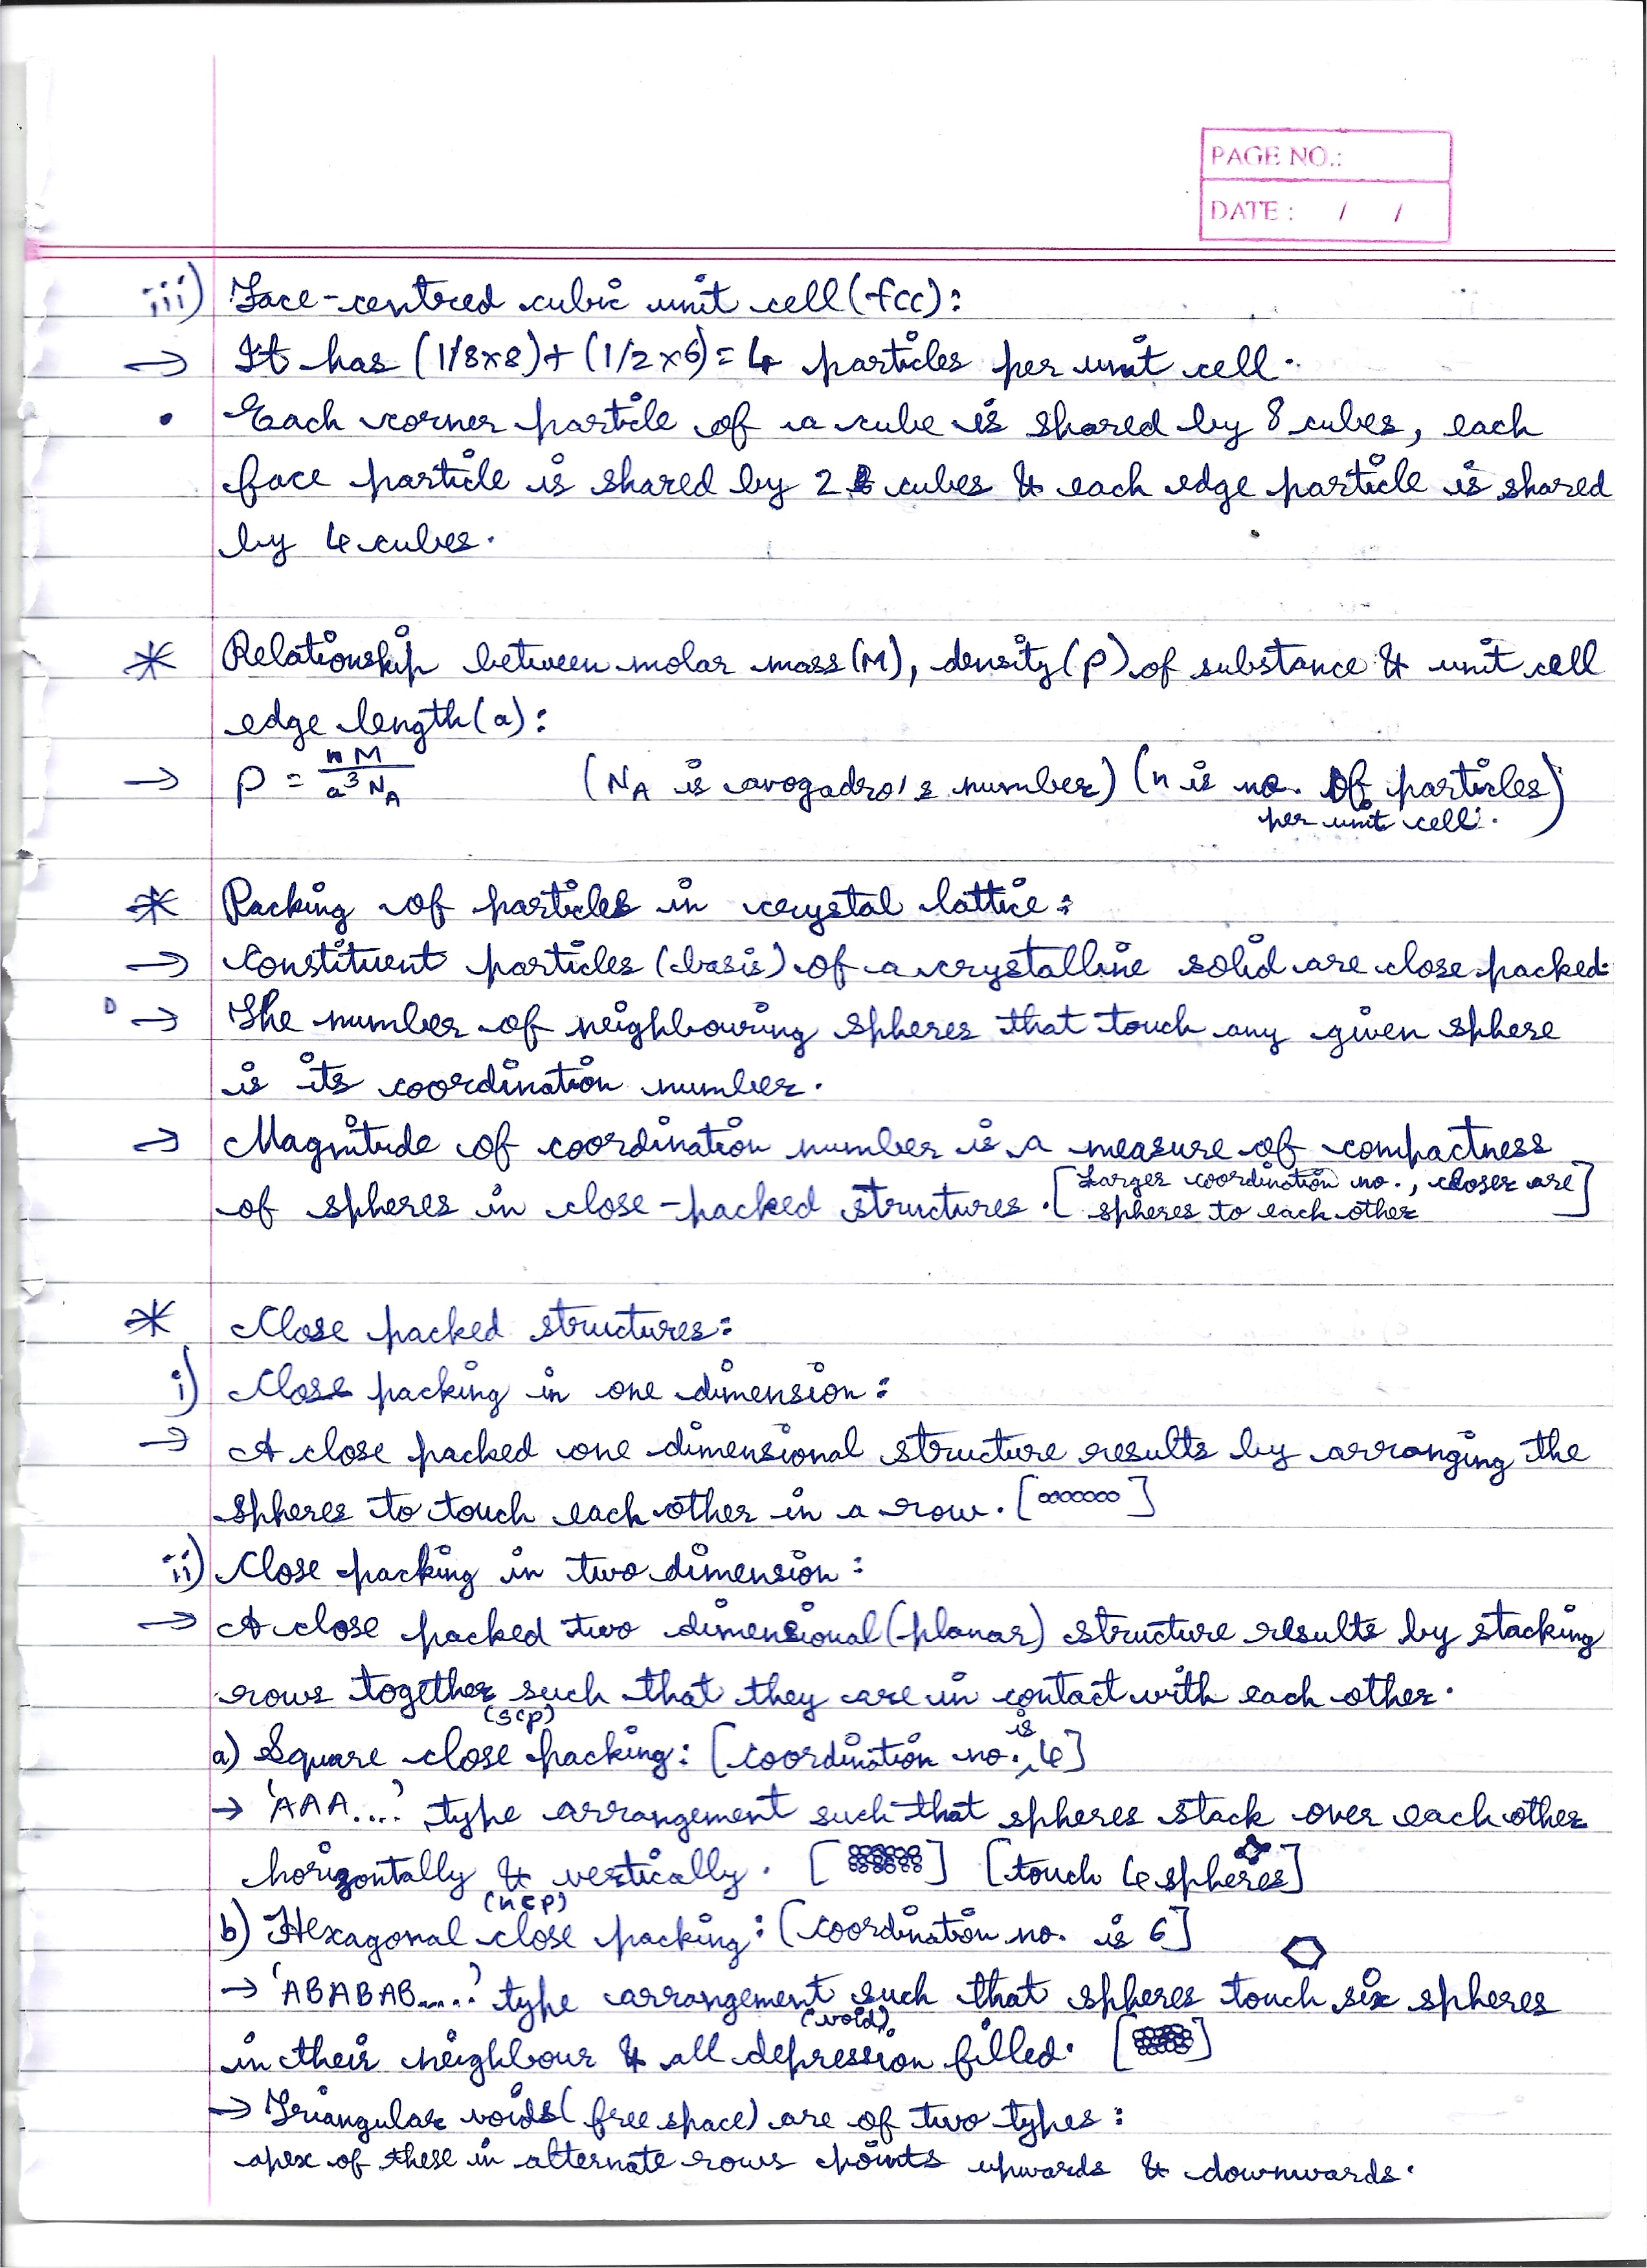 PAGE NO.:
DATE : / /
iii) Face-centred cubic unit cell (fcc):
→ It has (1/8×8)+(1/2×6)=4 particles per unit cell.
• Each corner particle of a cube is shared by 8 cubes, each
face particle is shared by 2 cubes & each edge particle is shared
by 4 cubes.
* Relationship between molar mass (M), density (ρ) of substance & unit cell
edge length (a):
→ ρ = nM / a³ N_A (N_A is avogadro's number) (n is no. of particles
per unit cell.)
* Packing of particles in crystal lattice:
→ Constituent particles (basis) of a crystalline solid are close packed.
→ The number of neighbouring spheres that touch any given sphere
is its coordination number.
→ Magnitude of coordination number is a measure of compactness
of spheres in close-packed structures. [Larger coordination no., closer are
spheres to each other]
* Close packed structures:
i) Close packing in one dimension:
→ A close packed one dimensional structure results by arranging the
spheres to touch each other in a row. [ ]
ii) Close packing in two dimension:
→ A close packed two dimensional (planar) structure results by stacking
rows together such that they are in contact with each other.
a) Square close packing (scp): [coordination no. is 4]
→ 'AAA....' type arrangement such that spheres stack over each other
horizontally & vertically. [ ] [touch 4 spheres]
b) Hexagonal close packing (hcp): [coordination no. is 6]
→ 'ABABAB.....' type arrangement such that spheres touch six spheres
in their neighbour & all depression (void) filled. [ ]
→ Triangular voids (free space) are of two types:
apex of these in alternate rows points upwards & downwards.